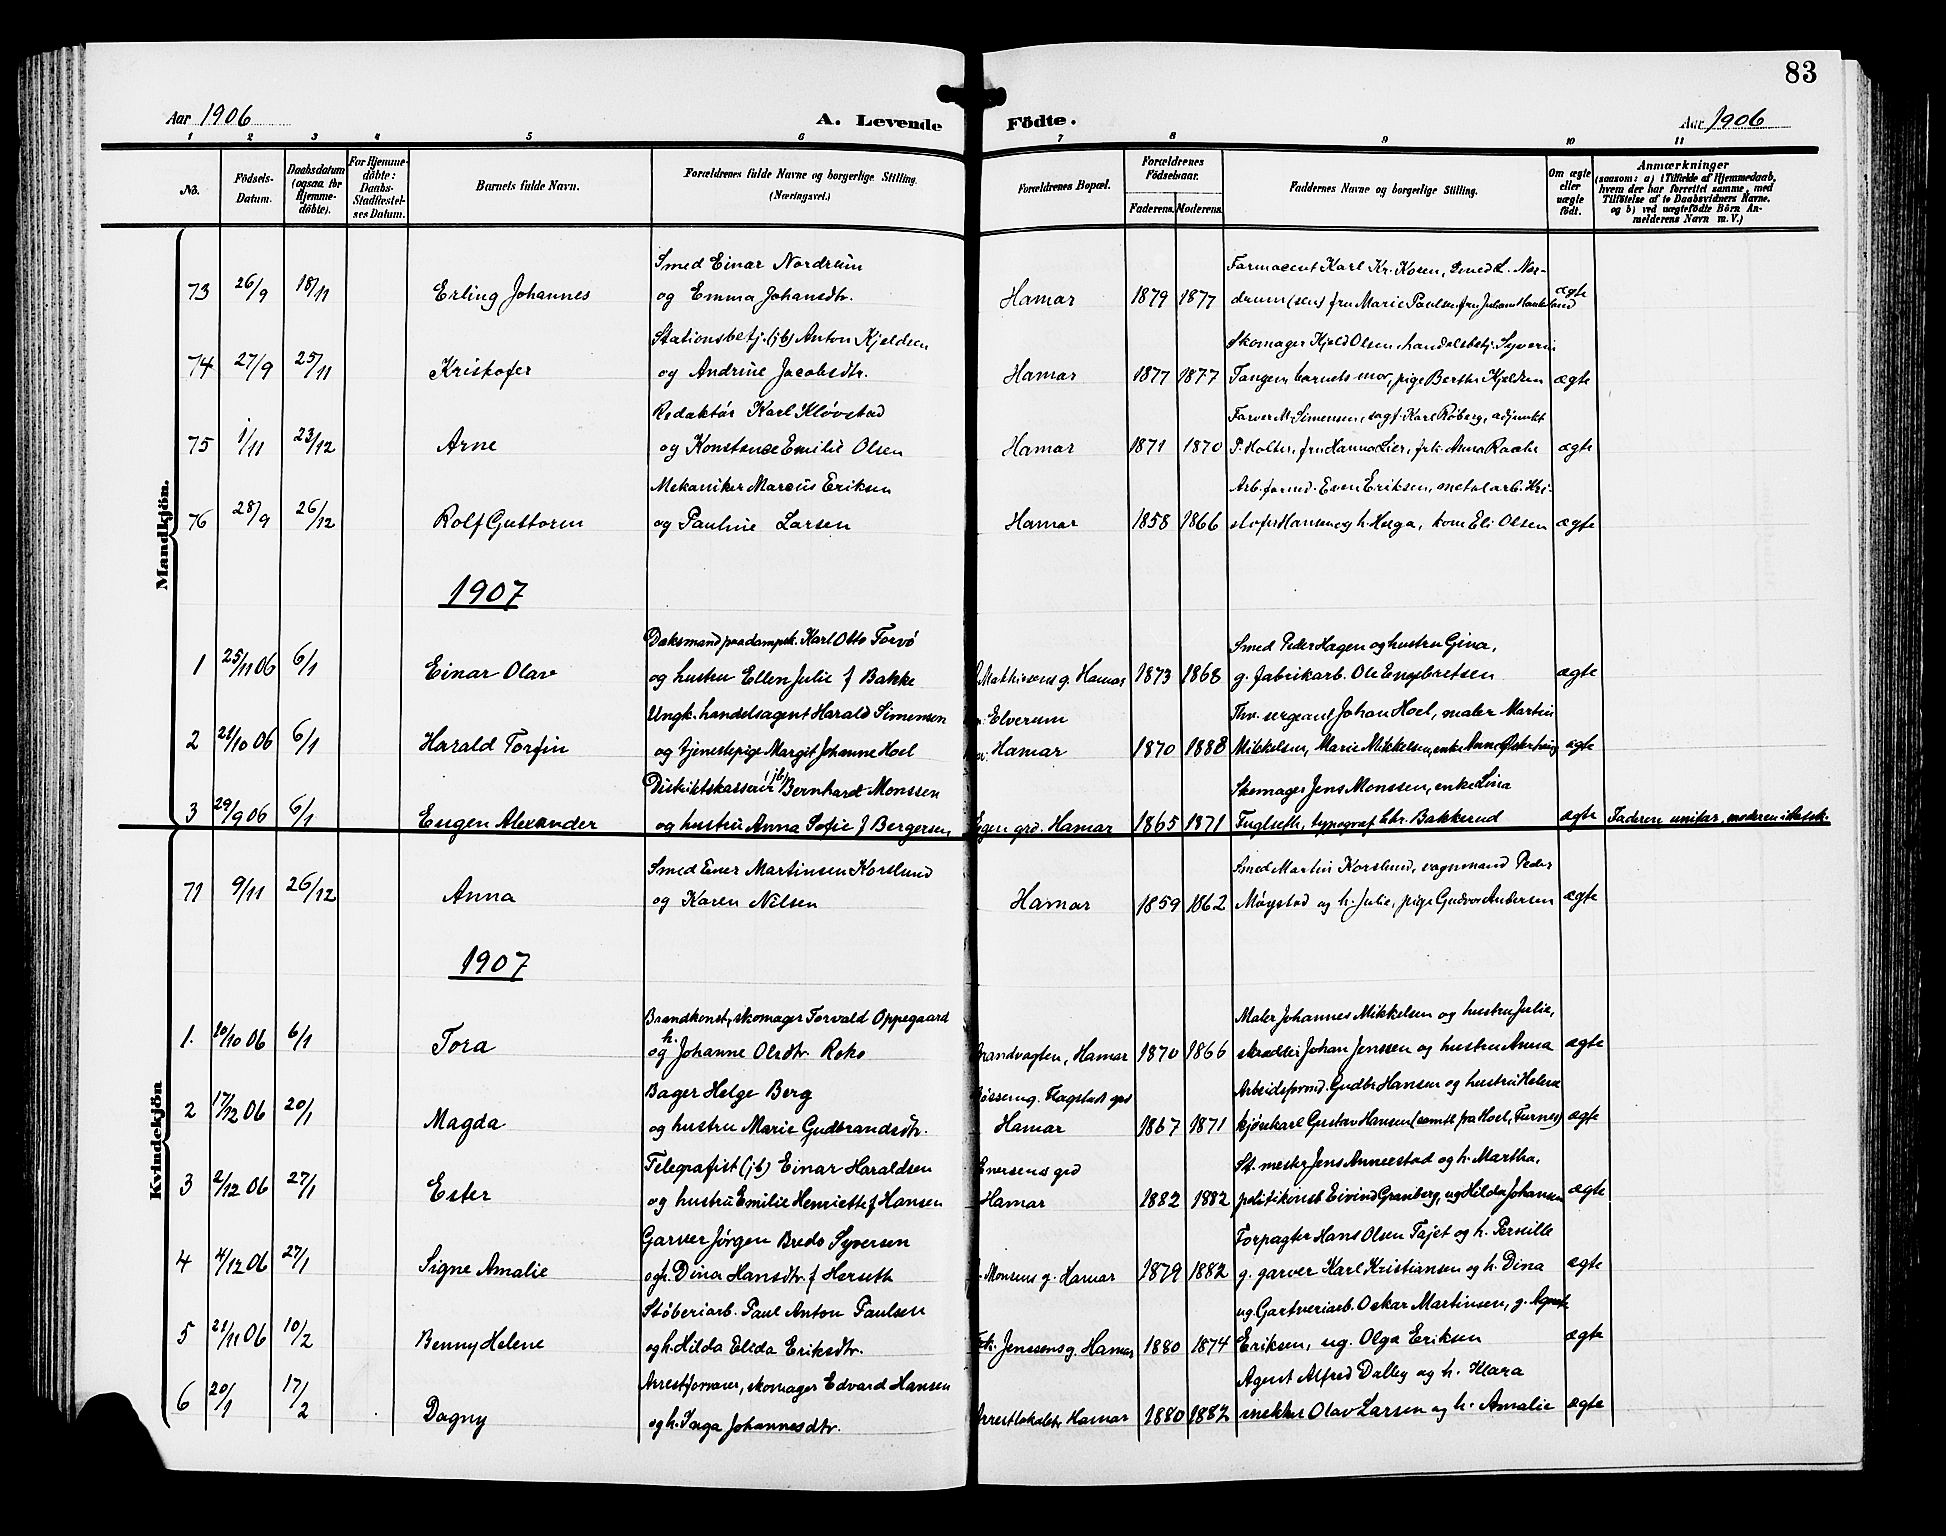 83
Aar 1906
A. Levende Födte.
Aar 1906
1 2 3 4 5 6 7 8 9 10 11
No.
Födsels-Datum.
Daabsdatum (ogsaa for Hjemme-döbte).
For Hjemme-döbte: Daabs-Stadfæstel-ses Datum.
Barnets fulde Navn.
Forældrenes fulde Navne og borgerlige Stilling. (Næringsvei.)
Forældrenes Bopæl.
Forældrenes Födselsaar.
Faderens. Moderens.
Faddernes Navne og borgerlige Stilling.
Om ægte eller uægte födt.
Anmærkninger
(saasom: a) i Tilfælde af Hjemmedaab, hvem der har forrettet samme, med Tilföielse af to Daabsvidners Navne. og b) ved uægtefödte Börn An-melderens Navn m. V.)
Mandkjön.
Smed Einar Nordrum Farmaceut Karl Kr. Kosen, smed L. Nor-
73 26/9 18/11 Erling Johannes og Emma Johansdtr. Hamar 1879 1877 drum (sen) fru Marie Paulsen, fru ægte
Stationsbetj. (jb) Anton Kjeldsen Skomager Kjeld Olsen, handelsbetj. Syverin
74 27/9 25/11 Kristofer og Andrine Jacobsdtr. Hamar 1877 1877 Tangen, barnets mor, pige Berthe Kjeldsen ægte
Redaktør Karl Kløvstad Farver M. Simensen, sagf. Karl Røberg, adjunkt
75 1/11 23/12 Arne og Konstance Emilie Olsen Hamar 1871 1870 P. Holter, fru Hanna Lier, frk. Anna Raabe ægte
Mekaniker Marcus Eriksen Arb.formd. Even Eriksen, metalarb. Kri-
76 28/9 26/12 Rolf Guttorm og Pauline Larsen Hamar 1858 1866 stofer Hansen og h. Helga, kone Eli Olsen ægte
1907
Dæksmand paa dampsk. Karl Otto Torvø Smed Peder Hagen og hustru Gina,
1 25/11 06 6/1 Einar Olav og hustru Ellen Julie f Bakke Mathisens g. Hamar 1873 1868 g. fabrikarb. Ole Engebretsen ægte
Ungk. handelsagent Harald Simensen Elverum Thv. sergeant Johan Hoel, maler Martin
2 21/10 06 6/1 Harald Torfin og tjenestepige Margit Johanne Hoel Hamar 1870 1888 Mikkelsen, Marie Mikkelsen, enke Anne ægte
Distriktskasserer (jb) Bernhard Monssen Skomager Jens Monssen, enke Lina
3 29/9 06 6/1 Eugen Alexander og hustru Anna Sofie f Bergersen Egen grd. Hamar 1865 1871 Fuglseth, typograf Chr. Bakkerud ægte Faderen unitar, moderen i statsk.
Kvindekjön
Smed Ener Martinsen Korslund Smed Martin Korslund, vognmand Peder
71 9/11 26/12 Anna og Karen Nilsen Hamar 1859 1862 Møystad og h. Julie, pige Gudvor Andersen ægte
1907
Brandkonst., skomager Torvald Oppegaard Maler Johannes Mikkelsen og hustru Julie,
1. 20/10 06 6/1 Tora og h. Johanne Olsdtr. Roko Brandvagten, Hamar 1870 1866 skrædder Johan Jenssen og hustru Anna ægte
Bager Helge Berg Flagstads grd Arbeidsformd. Gudbr Hansen og hustru Helene
2 17/12 06 20/1 Magda og hustru Marie Gudbrandsdtr. Hamar 1867 1871 kjørekarl Gustav Hansen (samtl. fra Hoel, Furnes) ægte
Telegrafist (jb) Einar Haraldsen Enersens grd St. mester Jens Annestad og h. Martha,
3 2/12 06 27/1 Ester og hustru Emilie Henriette f Hansen Hamar 1882 1882 politikonst Eivind Granberg, ug Hilda Johansen ægte
Garver Jørgen Bredo Syversen Forpagter Hans Olsen Fajet og h. Pernille
4 4/12 06 27/1 Signe Amalie og h. Dina Hansdtr. f Herseth Monsens g. Hamar 1879 1882 g. garver Karl Kristiansen og h. Dina ægte
Støberiarb. Paul Anton Paulsen ug Gartveriarb. Oskar Martinsen, g. Agnete
5 21/11 06 10/2 Benny Helene og h. Hilda Elida Eriksdtr. Frk. Jenssens g. Hamar 1880 1874 Eriksen, ug. Olga Eriksen ægte
Arrestforvarer, skomager Edvard Hansen Agent Alfred Dalby og h. Klara
6 20/1 17/2 Dagny og h. Inga Johannesdtr. Arrestlokalet, Hamar 1880 1882 snekker Olav Larsen og h. Amalie ægte